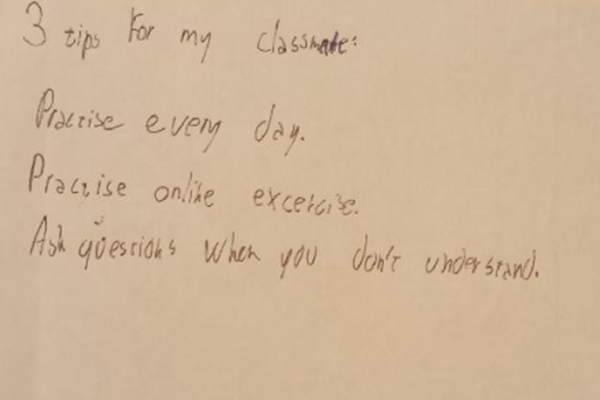 3 tips for my classmate:
Practise every day.
Practise online excercise.
Ask questions when you don't understand.